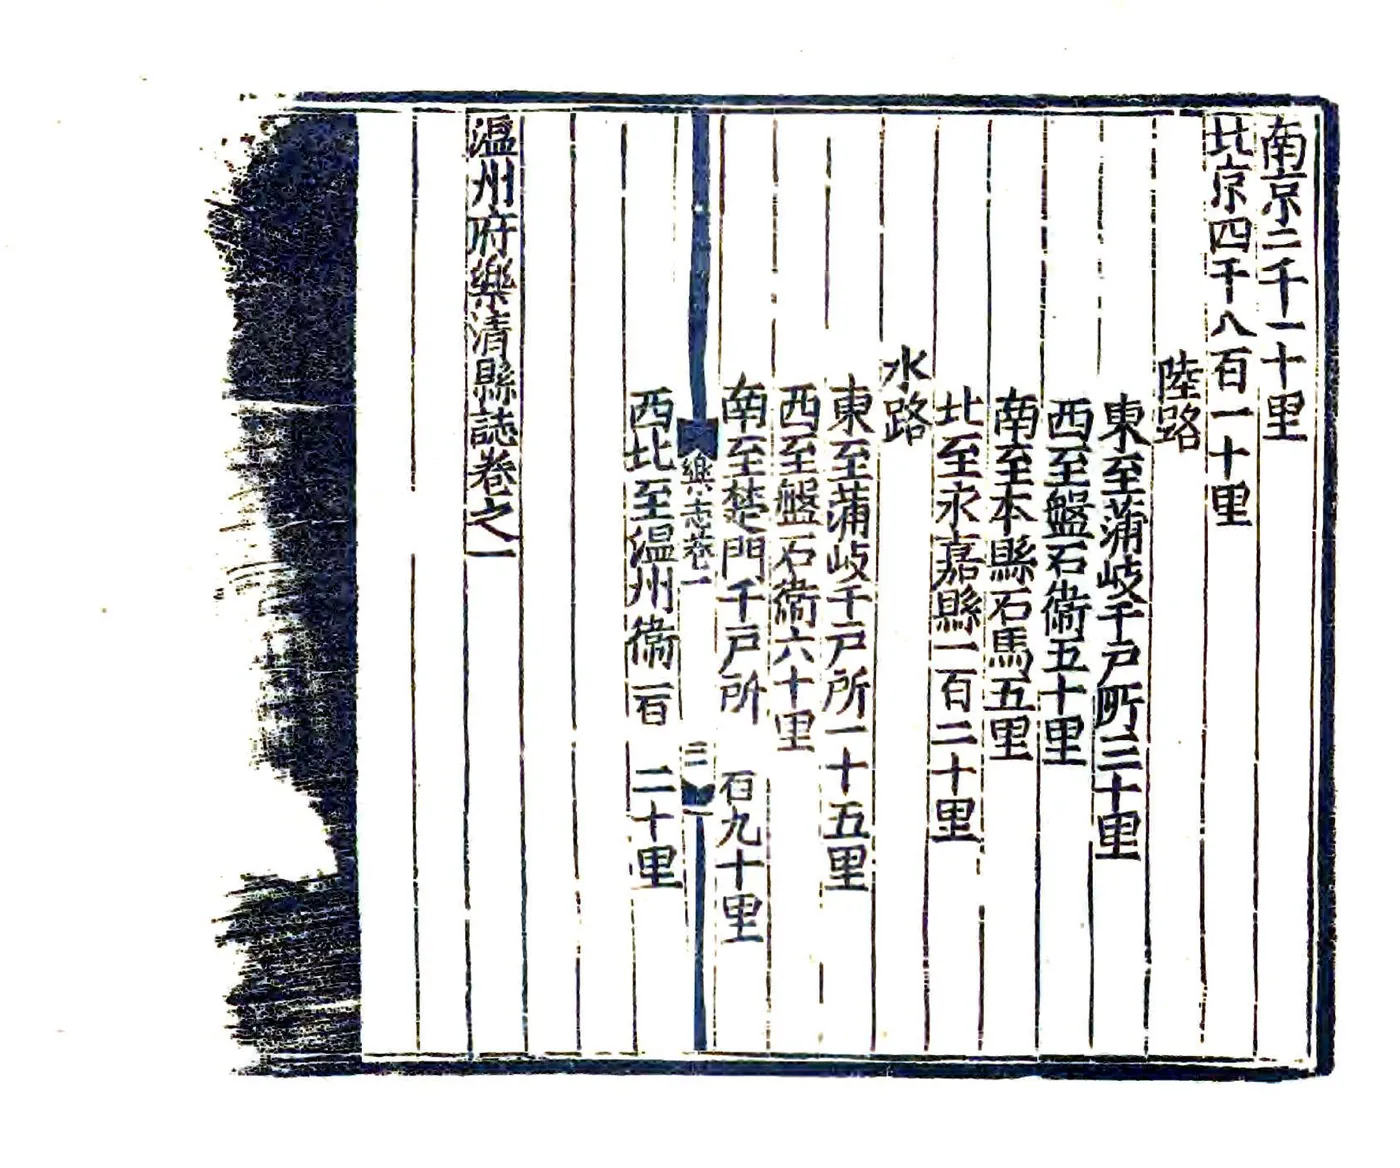 南京二千一十里
北京四千八百一十里
陸路
東至蒲岐千戶所三十里
西至盤石衞五十里
南至本縣石馬五里
北至永嘉縣一百二十里
水路
東至蒲岐千戶所一十五里
西至盤石衞六十里
南至楚門千戶所一百九十里
樂志卷一
三
西北至温州衞一百二十里
温州府樂清縣誌卷之一